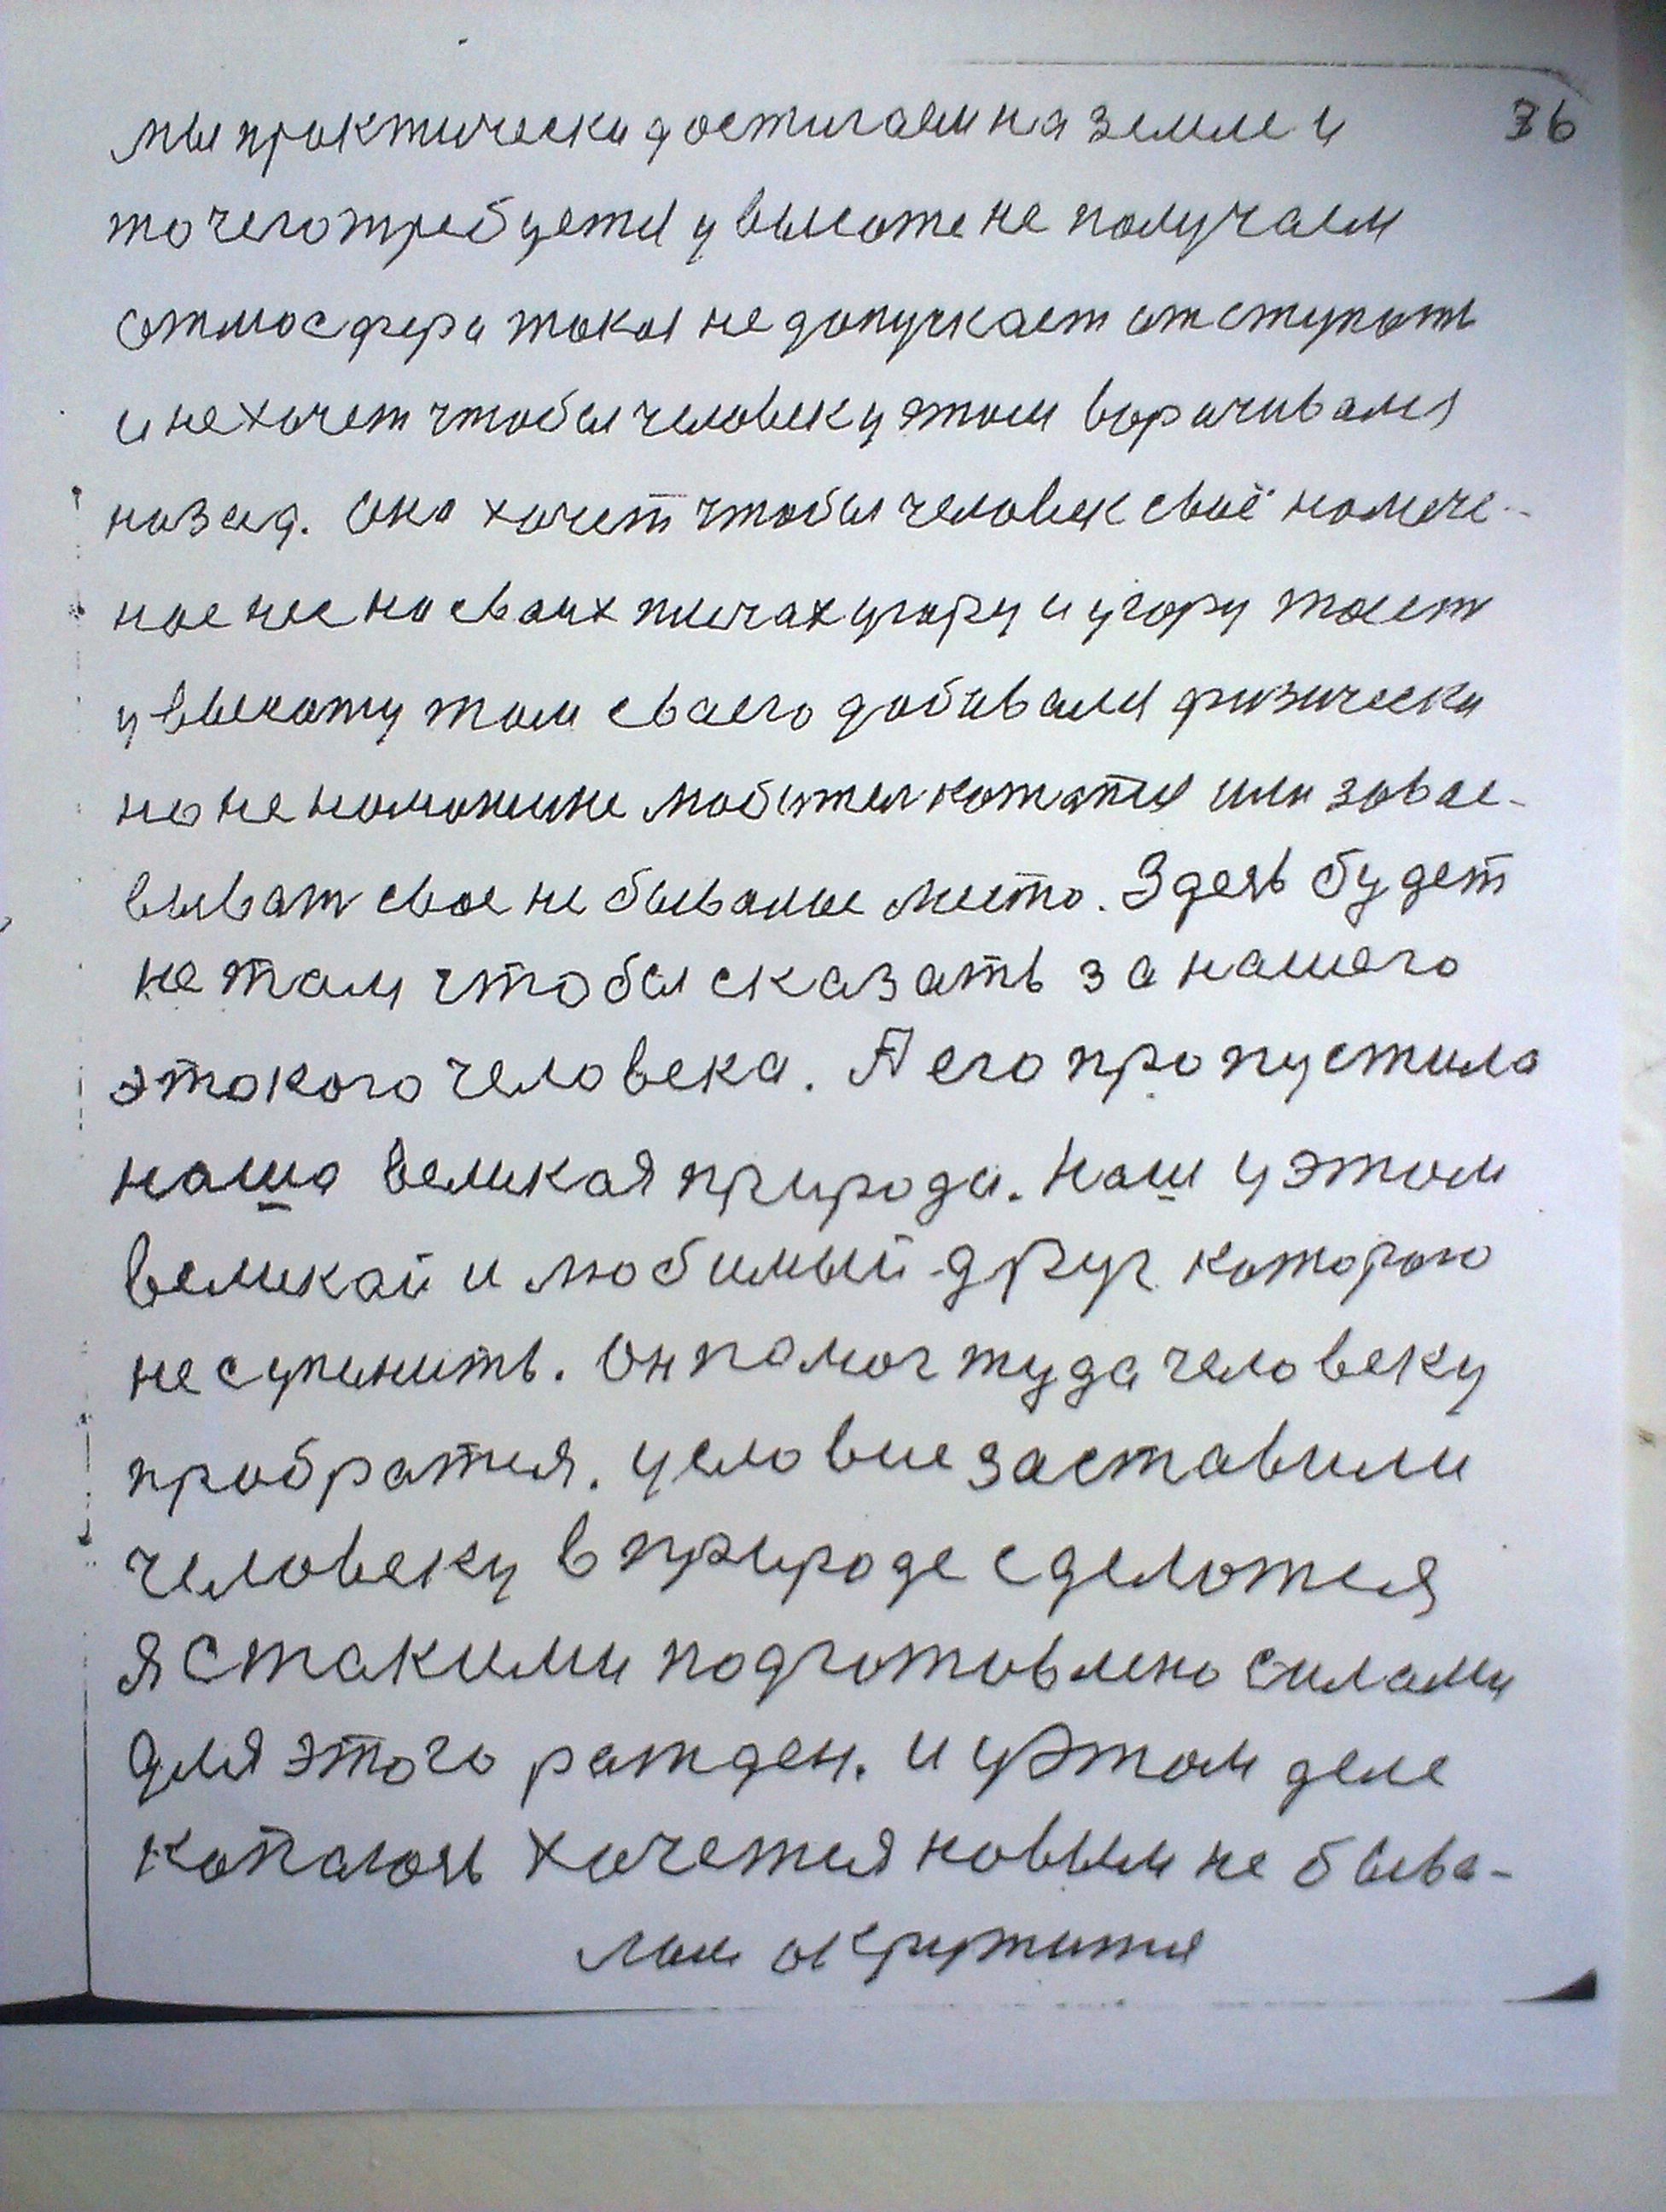 мы практически достигаем на земле и 36
то чего требуется у высоте не получаем
атмосфера такая не допускает отступать
и не хочет чтобы человек у этом ворачивался
назад. Она хочет чтобы человек своё намече-
ное нес на своих плечах угору и угору тоест
у высоту там сваего добивался физически
но не на машине мобител кататся или завае-
выват свое не бывалое место. Здеяь будет
не там чтобы сказать за нашего
этакого человека. А его пропустила
наша великая природа. Наш у этом
великай и любимый друг которою
не сущинить. Он памог туда человеку
пробратся. условие заставили
человеку в природе сделатся
я с такими подготовлено силами
для этого ражден. и у этом деле
копаюяь хочется новым не быва-
лым окружится